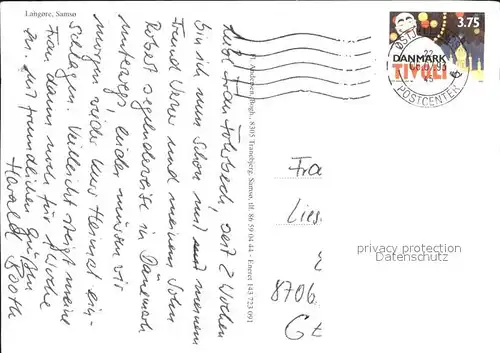 Labgøre, Samsø
Liebe Frau Forstbach, seit 2 Wochen
bin ich nun schon mit meinem
Freund Uwe und meinem Sohn
Robert segelnderweise in Dänemark
unterwegs, leider müssen wir
morgen wieder Kurs Heimat ein-
schlagen. Vielleicht steigt meine
Frau dann noch für 1 Woche
zu. Mit freundlichen Grüßen
Harald Booth
Andersen Bogh., 8305 Tranebjerg, Samsø, tlf. 86 59 04 44 - Eneret 143 723 091
3.75
DANMARK
TIVOLI
POSTCENTER
Fra
Lies
8706
privacy protection
Datenschutz